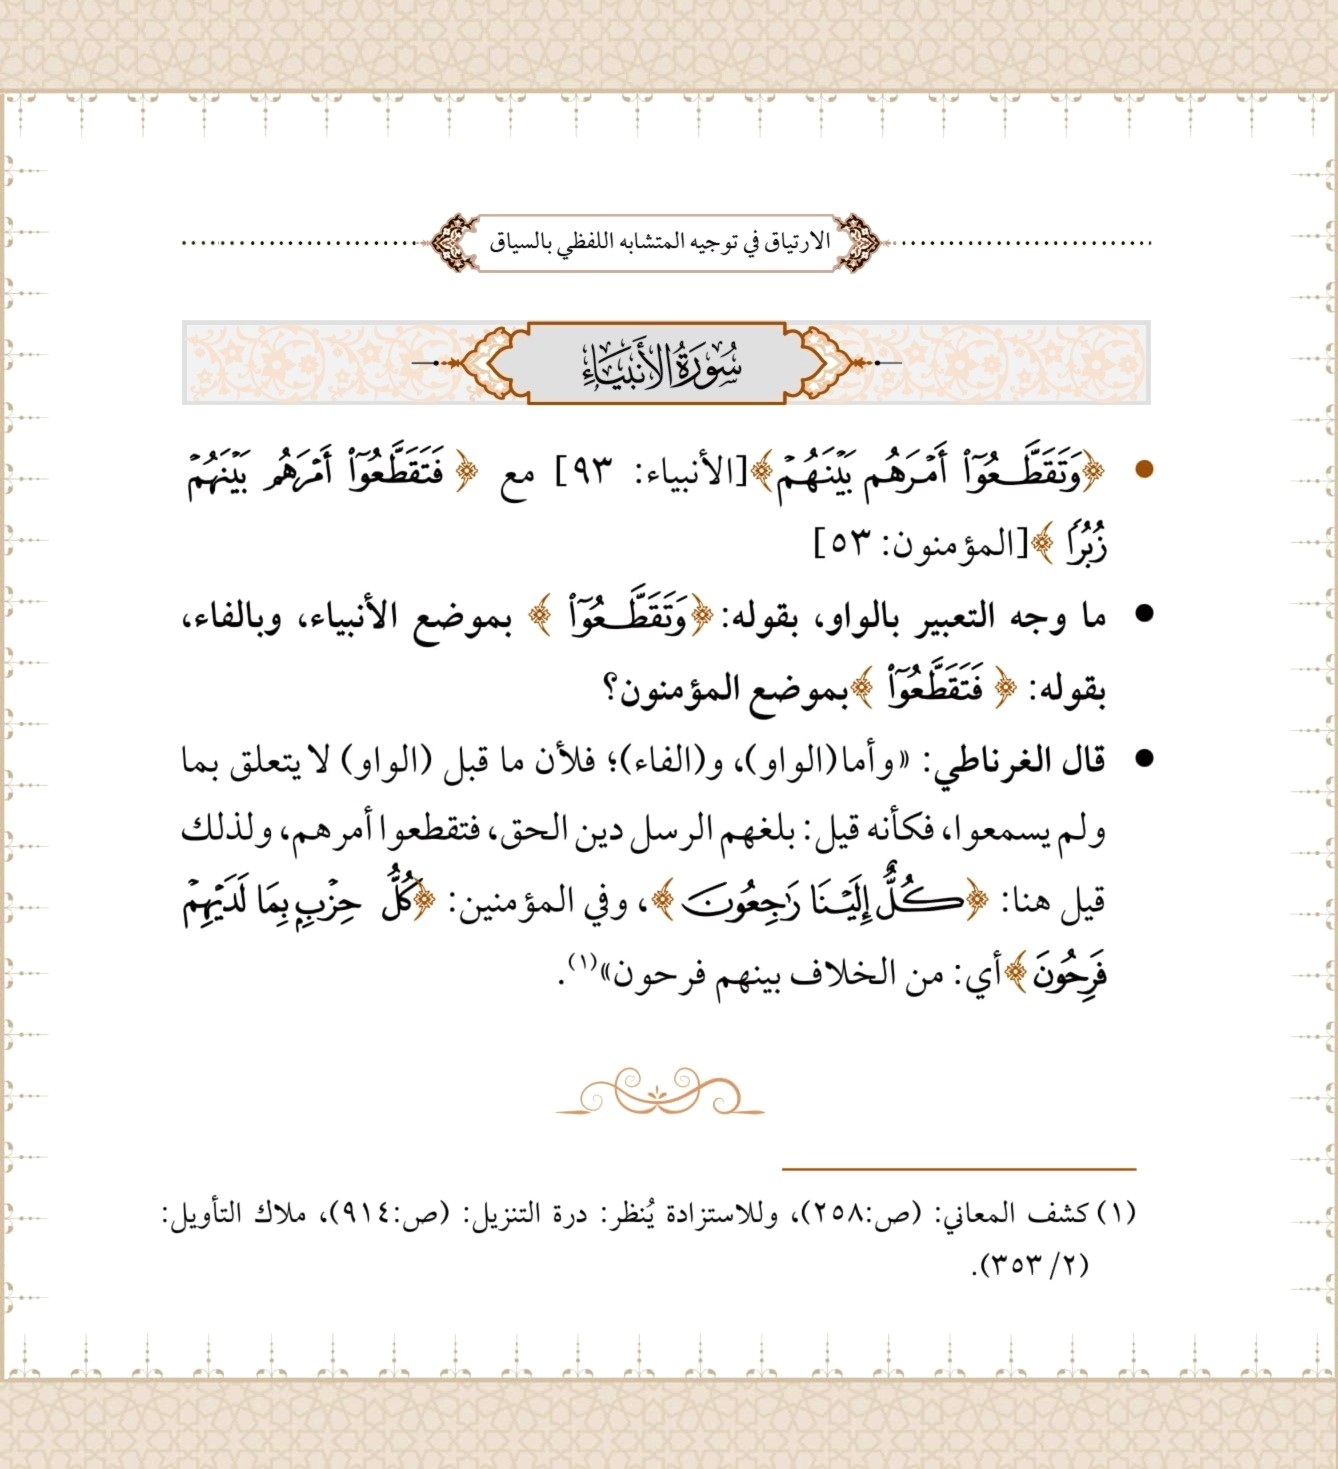 الارتياق في توجيه المتشابه اللفظي بالسياق
سُورَةُ الأَنبِيَاءِ
• ﴿وَتَقَطَّعُوٓاْ أَمۡرَهُم بَيۡنَهُمۡ﴾[الأنبياء: ٩٣] مع ﴿ فَتَقَطَّعُوٓاْ أَمۡرَهُم بَيۡنَهُمۡ
زُبُرٗا ﴾[المؤمنون: ٥٣]
• ما وجه التعبير بالواو، بقوله: ﴿وَتَقَطَّعُوٓاْ ﴾ بموضع الأنبياء، وبالفاء،
بقوله: ﴿ فَتَقَطَّعُوٓاْ ﴾بموضع المؤمنون؟
• قال الغرناطي: «وأما(الواو)، و(الفاء)؛ فلأن ما قبل (الواو) لا يتعلق بما
ولم يسمعوا، فكأنه قيل: بلغهم الرسل دين الحق، فتقطعوا أمرهم، ولذلك
قيل هنا: ﴿كُلٌّ إِلَيۡنَا رَٰجِعُونَ ﴾، وفي المؤمنين: ﴿كُلُّ حِزۡبِۭ بِمَا لَدَيۡهِمۡ
فَرِحُونَ ﴾أي: من الخلاف بينهم فرحون»(١).
(١) كشف المعاني: (ص:٢٥٨)، وللاستزادة يُنظر: درة التنزيل: (ص:٩١٤)، ملاك التأويل:
(٢/ ٣٥٣).